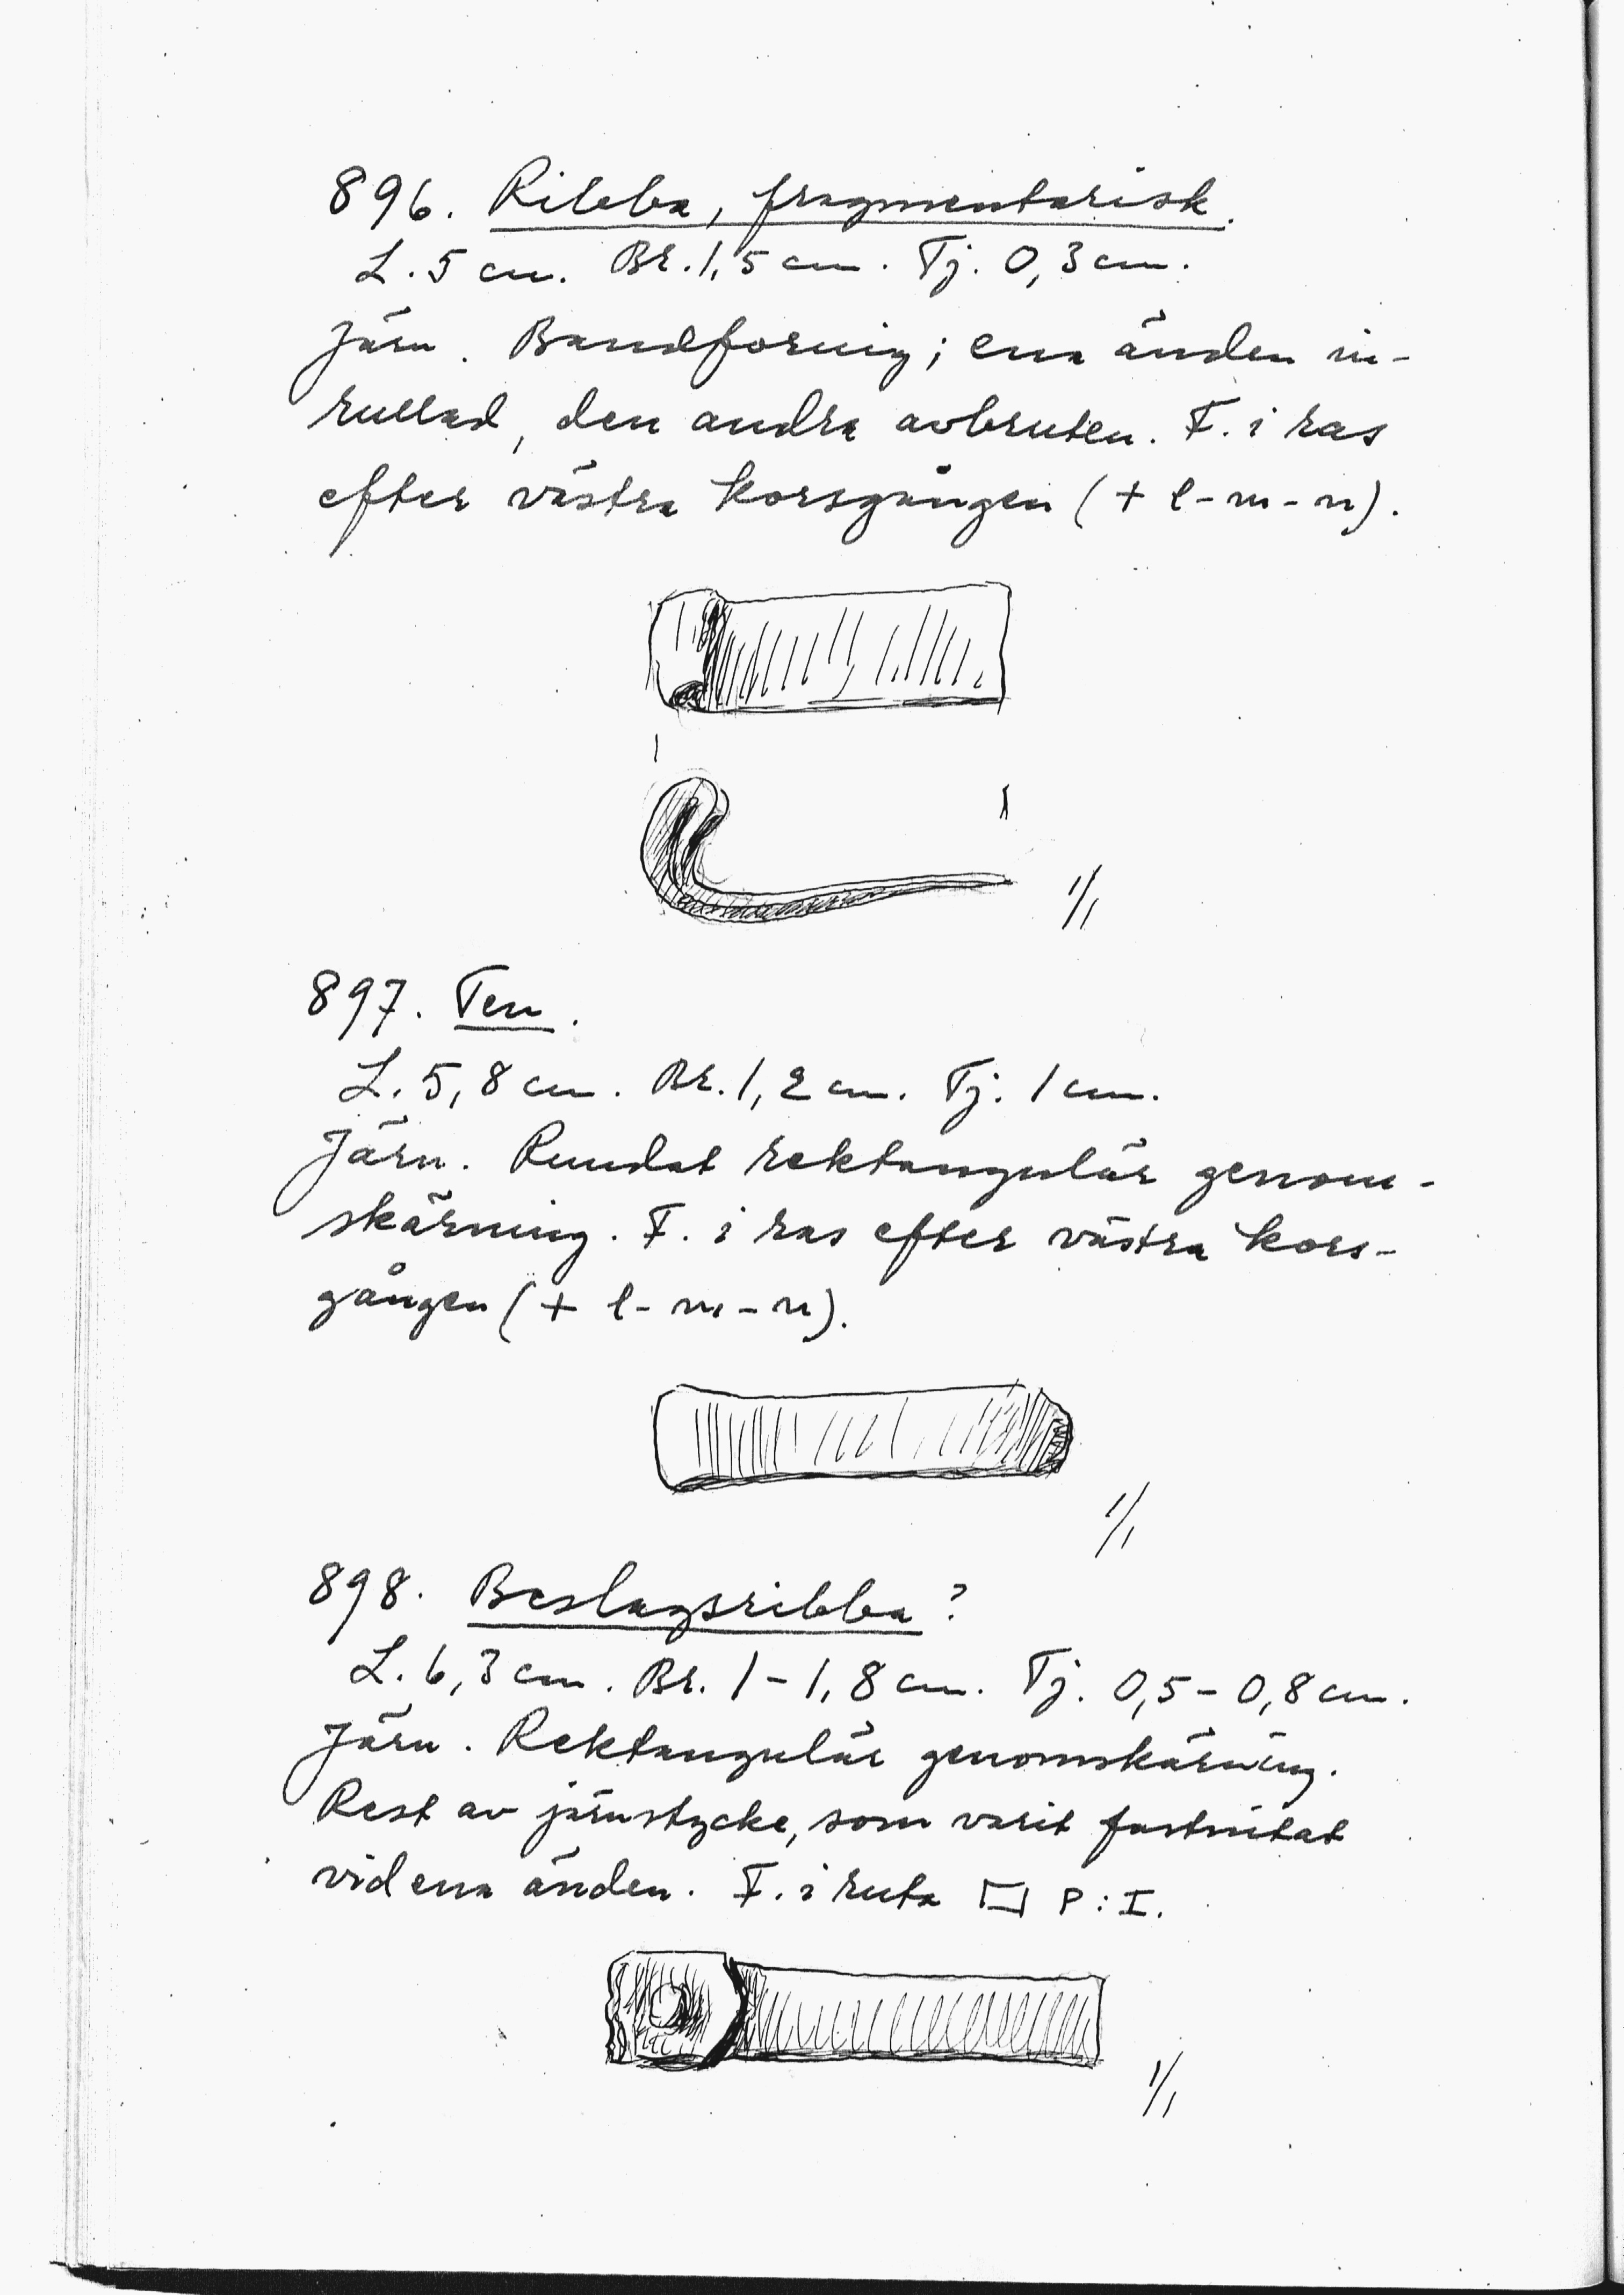 896. Ribba, fragmentarisk.
L. 5 cm. Br. 1,5 cm. Tj. 0,3 cm.
Järn. Bandformig; ena änden in-
rullad, den andra avbruten. F. i ras
efter västra korsgången (+ l-m-n).
1/1
897. Ten.
L. 5,8 cm. Br. 1,2 cm. Tj. 1 cm.
Järn. Rundat rektangulär genom-
skärning. F. i ras efter västra kors-
gången (+ l-m-n).
1/1
898. Beslagsribba?
L. 6,3 cm. Br. 1-1,8 cm. Tj. 0,5-0,8 cm.
Järn. Rektangulär genomskärning.
Rest av järnstycke, som varit fastnitat
vid ena änden. F. i ruta □ P:I.
1/1